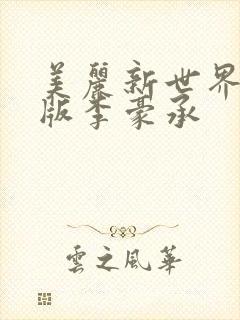 美麗新世界
版李豪承
雲之風華